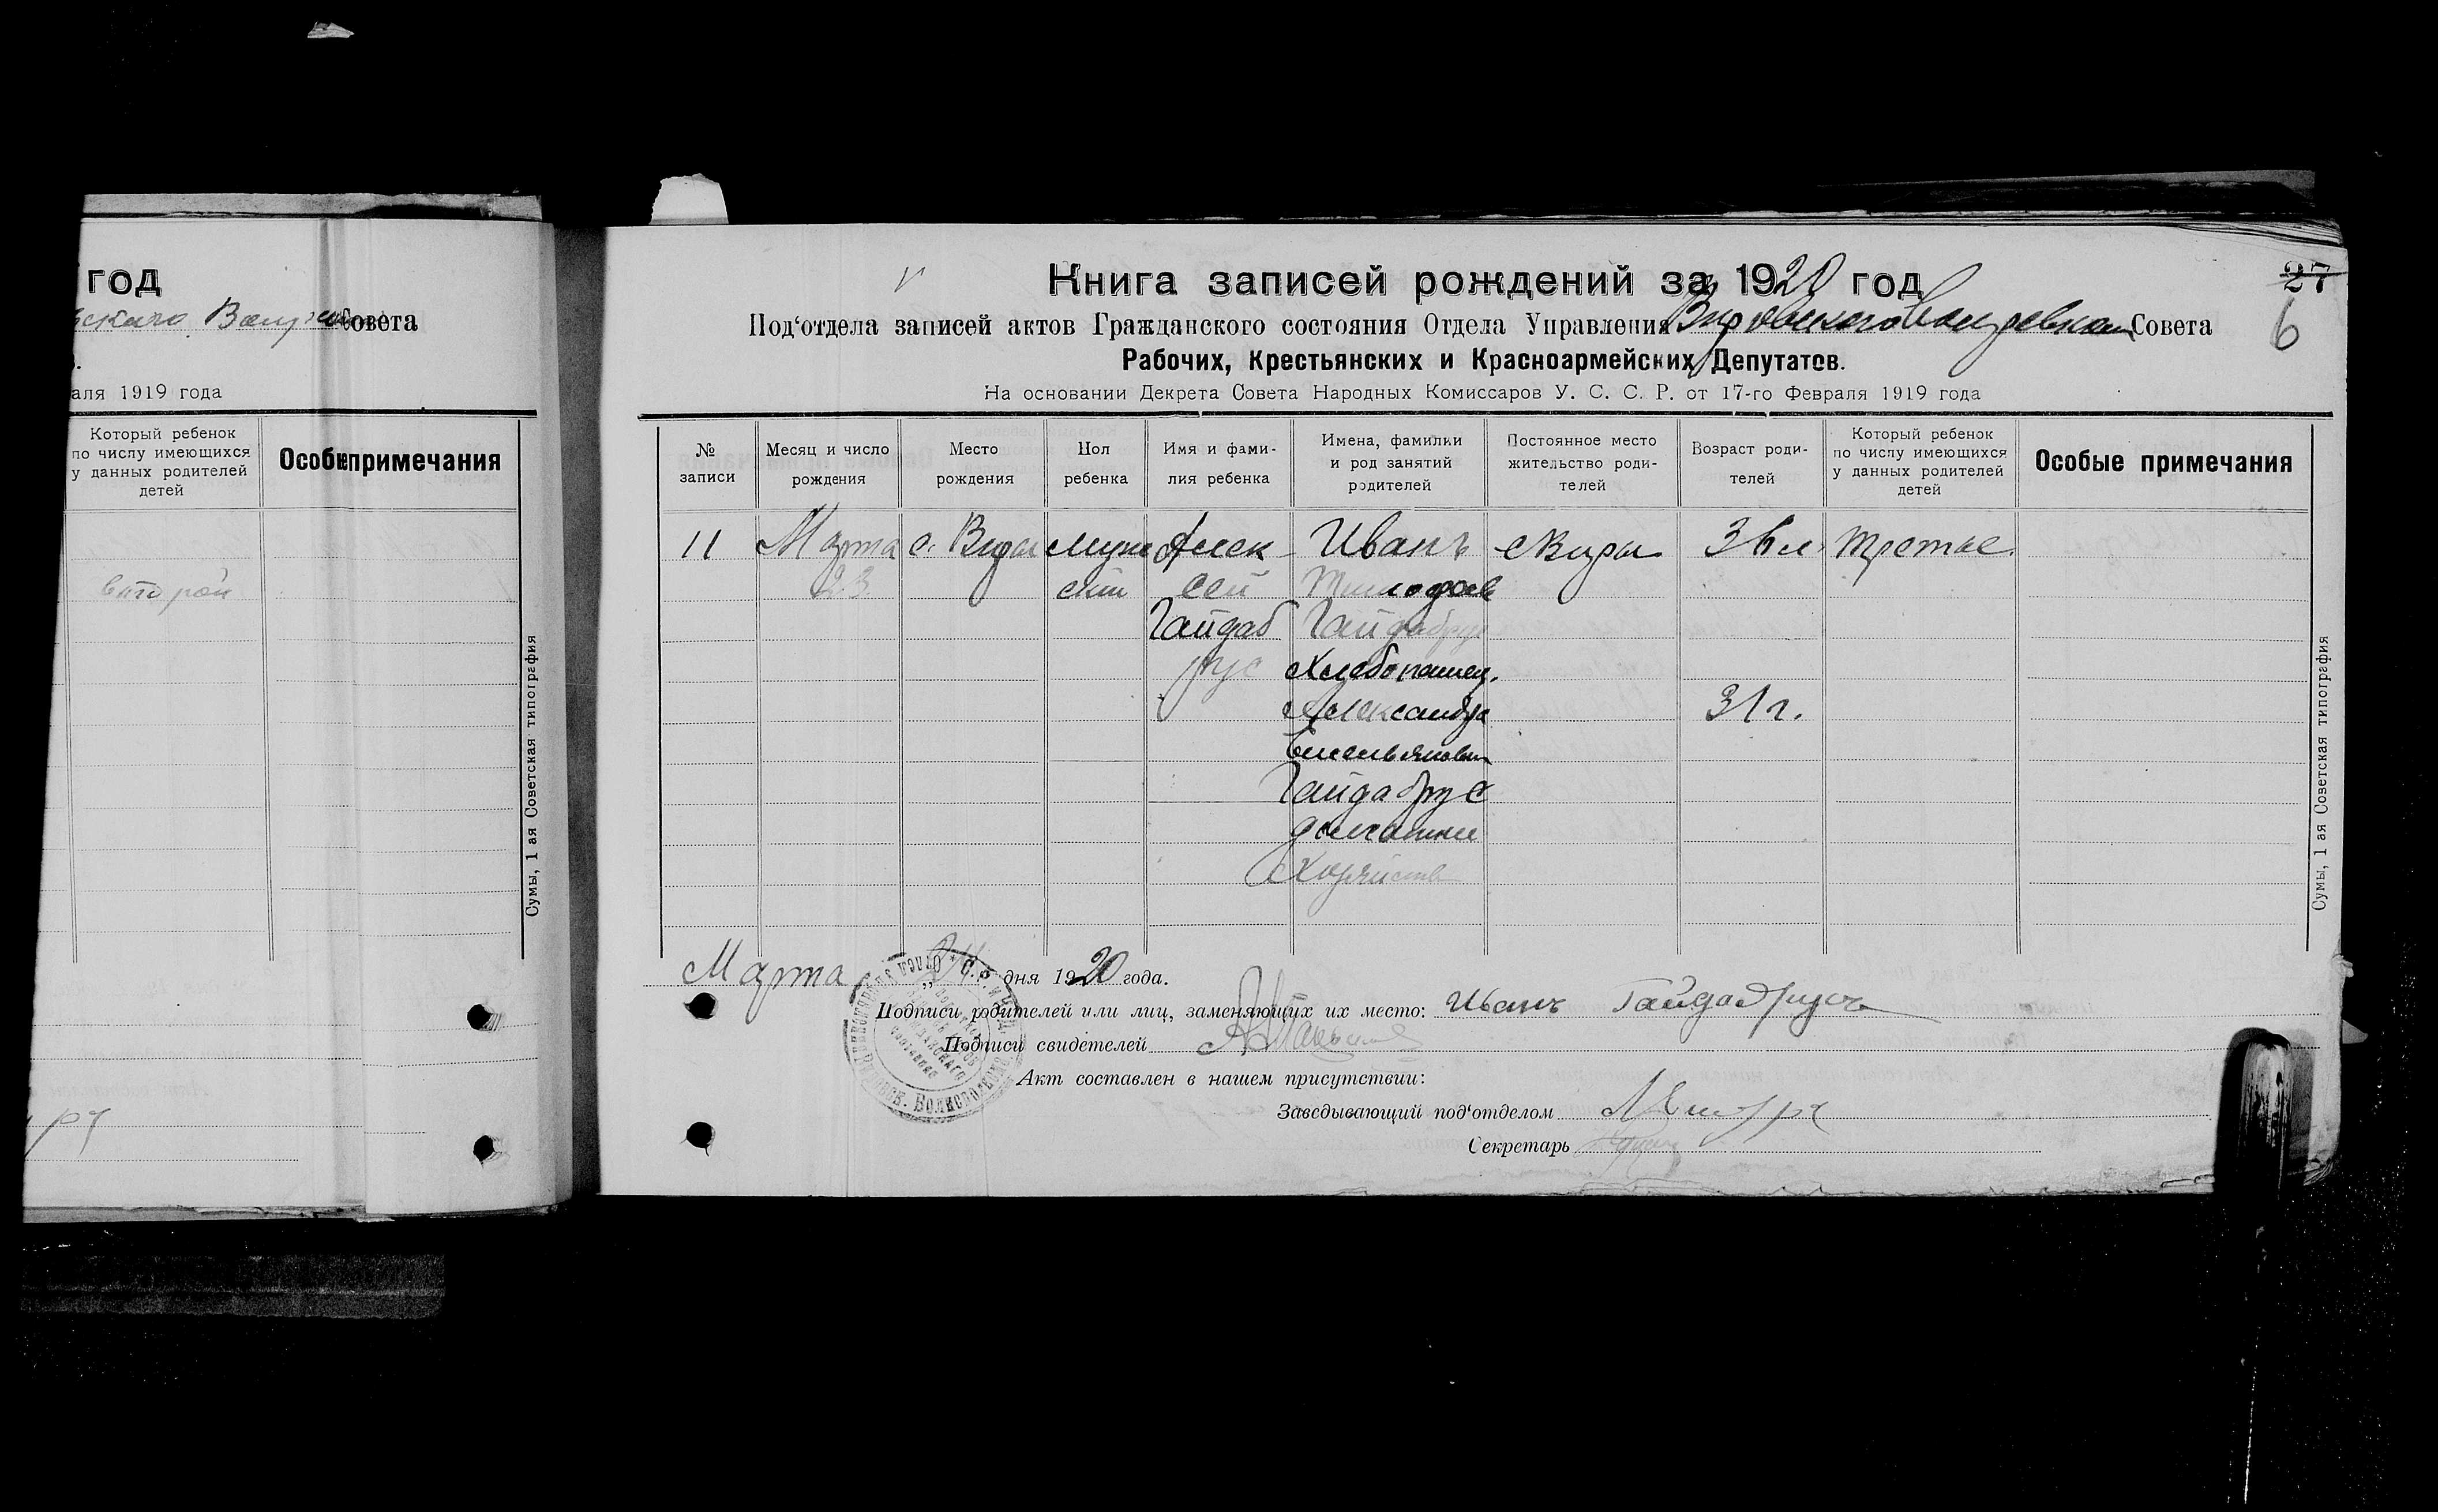 год
Совета
аля 1919 года
Который ребенок
по числу имеющихся
у данных родителей
детей
Особые примечания
второй
Сумы, 1 ая Советская типография
Книга записей рождений за 1920 год
27
6
Под'отдела записей актов Гражданского состояния Отдела Управления Совета
Рабочих, Крестьянских и Красноармейских Депутатов.
На основании Декрета Совета Народных Комиссаров У. С. С. Р. от 17-го Февраля 1919 года
№ записи
Месяц и число рождения
Место рождения
Пол ребенка
Имя и фами-
лия ребенка
Имена, фамилии
и род занятий
родителей
Постоянное место
жительство роди-
телей
Возраст роди-
телей
Который ребенок
по числу имеющихся
у данных родителей
детей
Особые примечания
11 Марта с. Виры муже Алек Иванъ с Виры 36 л. третье
23 ский сей Тимофеев
Гайдаб Гайдабрус
рус Хлебопашец.
Александра 31 г.
Емельяновн
Гайдабрус
домашнее
Хозяйств
Сумы, 1 ая Советская типография
Марта дня 1920 года.
Подписи родителей или лиц, заменяющих их место: Иванъ Гайдабрусъ
Подписи свидетелей
Акт составлен в нашем присутствии:
Заведывающий под'отделом
Секретарь